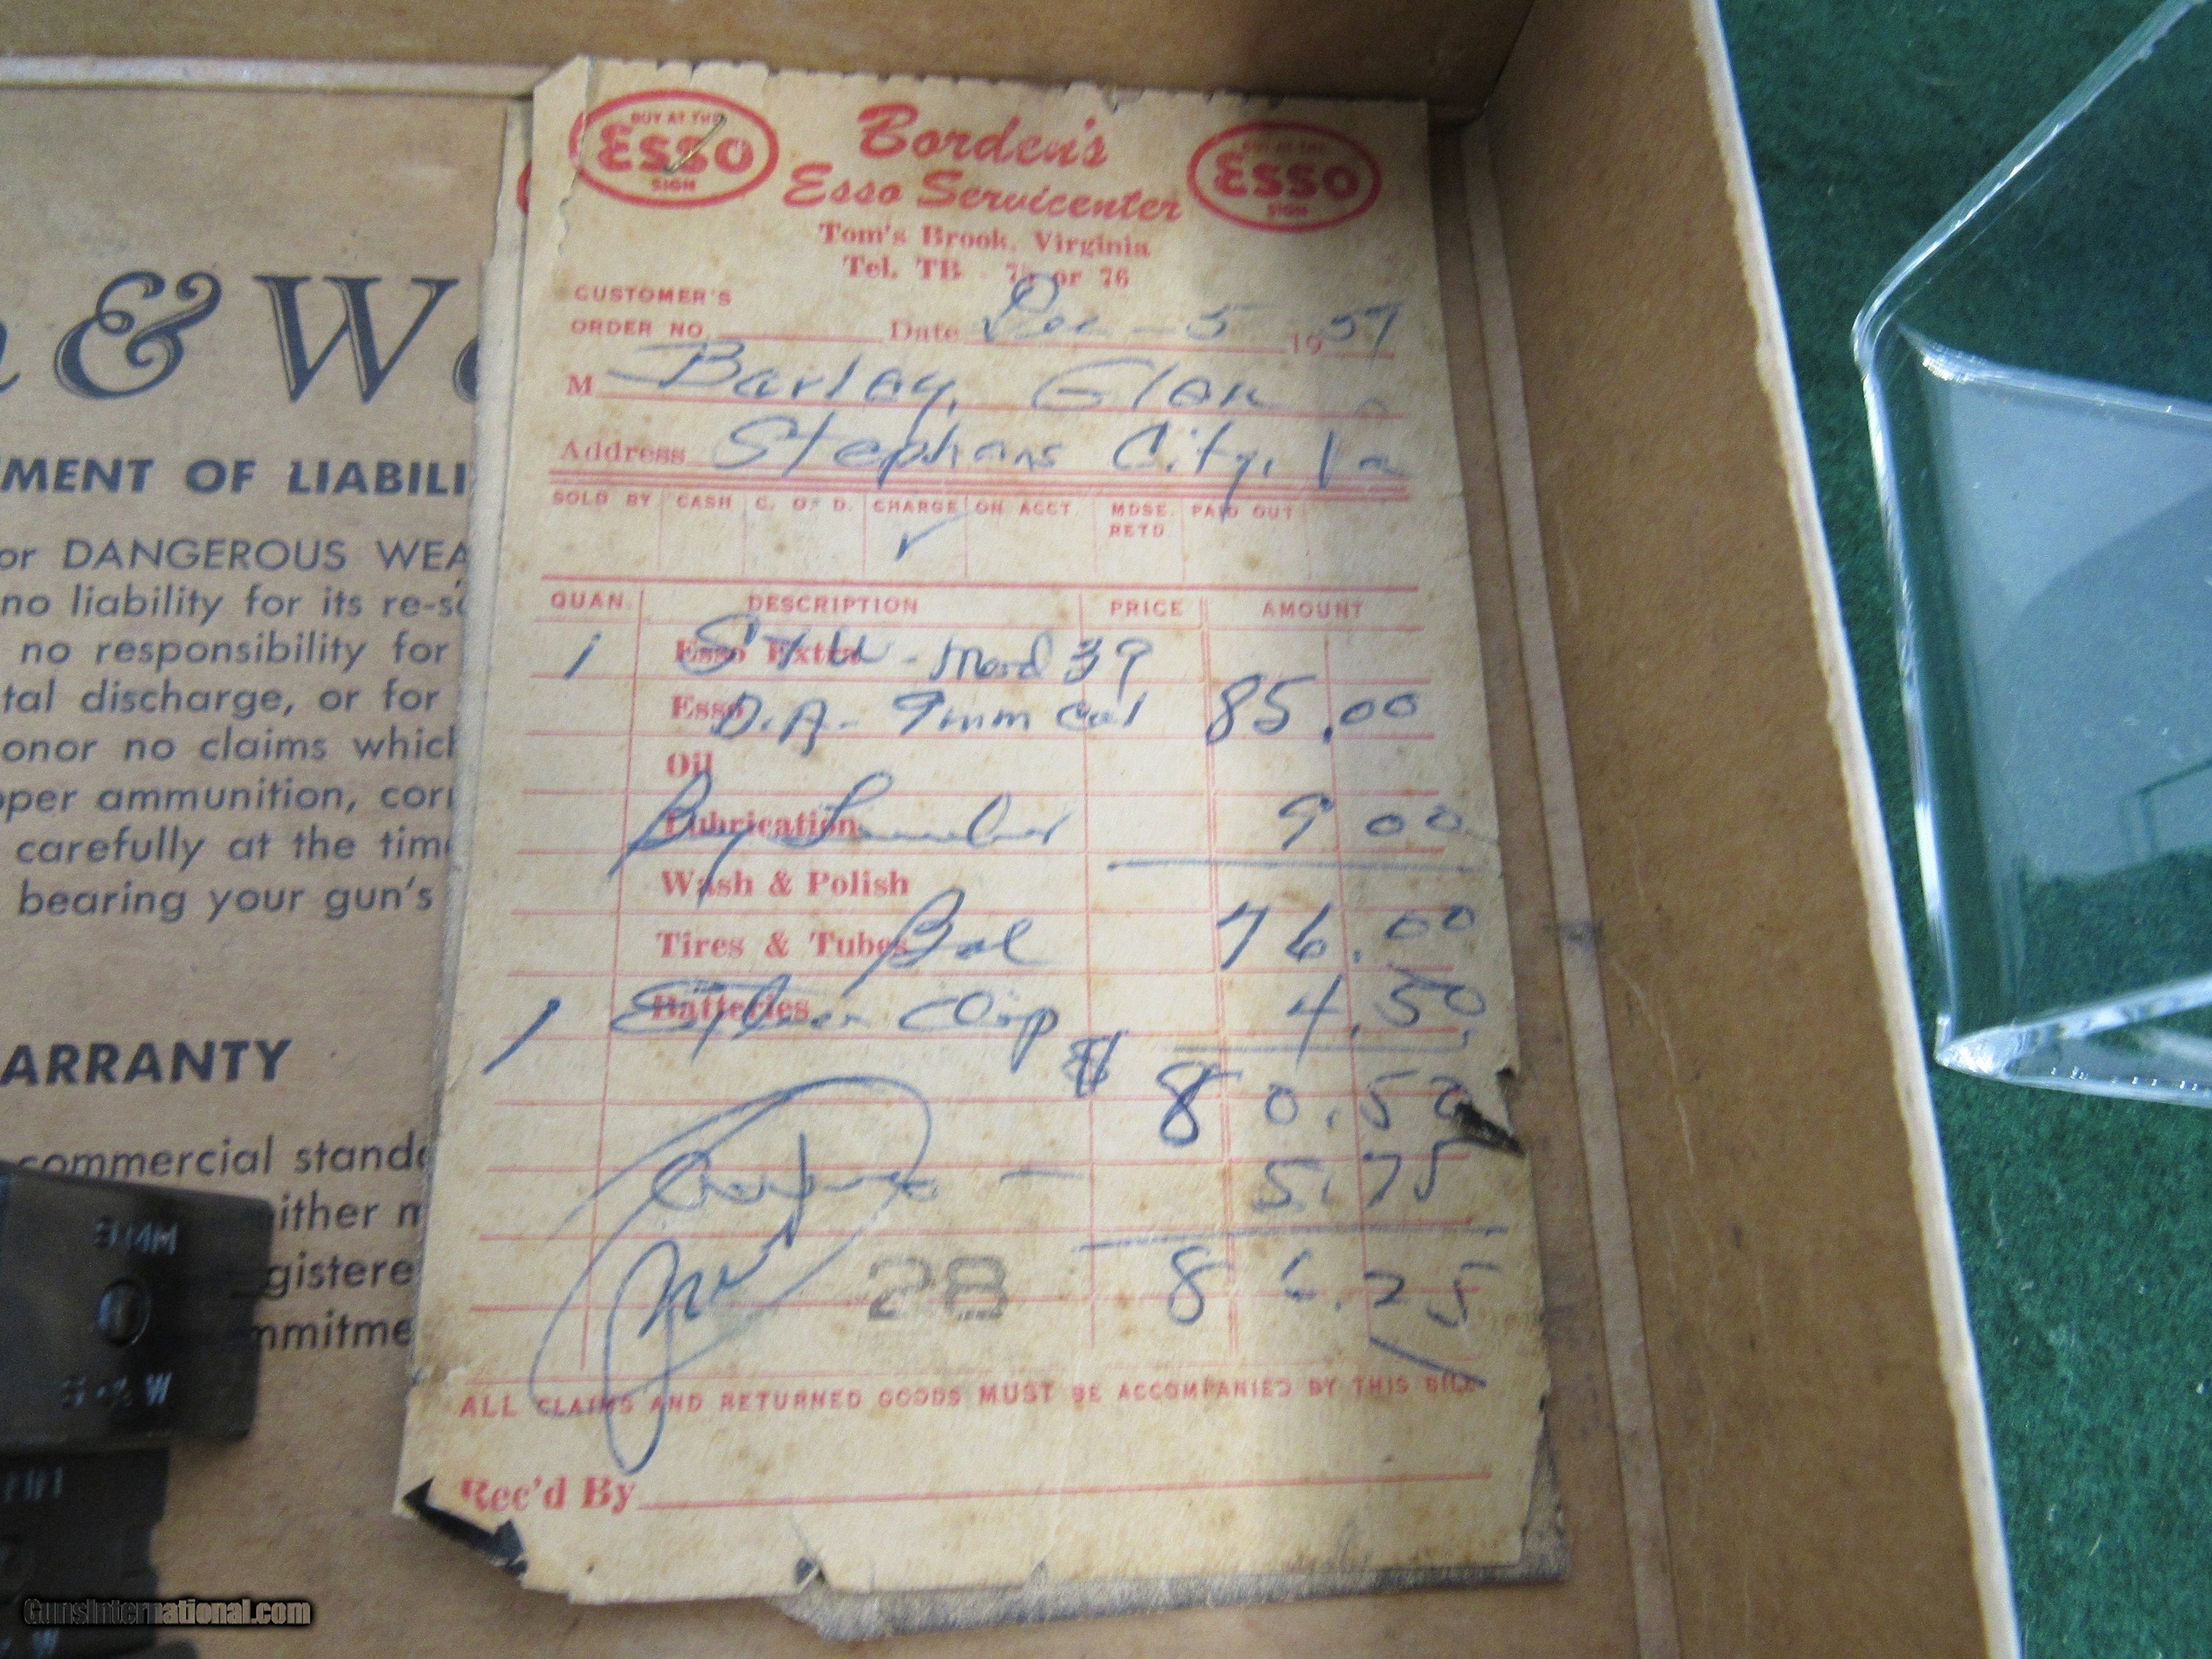 BUY AT THE
Esso
SIGN
Borden's
Esso Servicenter
BUY AT THE
Esso
SIGN
Tom's Brook, Virginia
Tel. TB - 75 or 76
CUSTOMER'S
ORDER NO. Date Dec - 5 1957
M Barley, Glen
Address Stephans City, Va
SOLD BY CASH C. O. D. CHARGE ON ACCT. MDSE. RETD PAID OUT
✓
QUAN. DESCRIPTION PRICE AMOUNT
1 Esso Extra S & W - Mod 39
Esso D.A - 9mm Cal 85.00
Oil
Lubrication By 9 00
Wash & Polish
Tires & Tubes Bal 76.00
1 Batteries Clip 4.50
$ 80.50
- 5.75
28 86.25
ALL CLAIMS AND RETURNED GOODS MUST BE ACCOMPANIED BY THIS BILL
Rec'd By
& W
MENT OF LIABILI
or DANGEROUS WEA
no liability for its re-s
no responsibility for
tal discharge, or for
onor no claims which
per ammunition, corr
carefully at the time
bearing your gun's
ARRANTY
commercial standa
either m
gistere
mmitme
S & W
GunsInternational.com